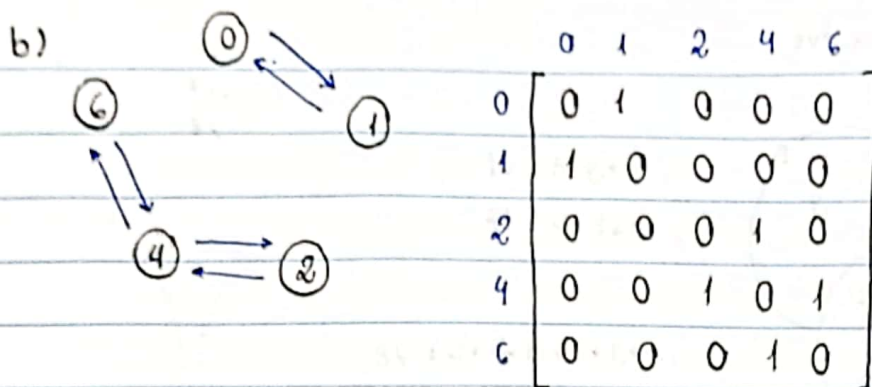 b)
0
6
1
4
2
0 1 2 4 6
0 0 1 0 0 0
1 1 0 0 0 0
2 0 0 0 1 0
4 0 0 1 0 1
6 0 0 0 1 0